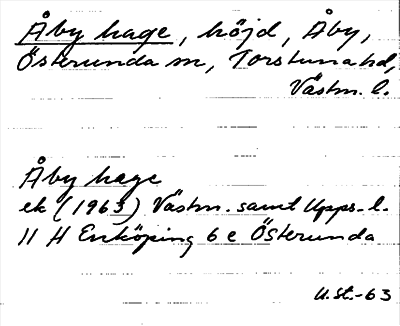 Åby hage, höjd, Åby,
Österunda sn, Torstuna hd,
Västm. l.
Åby hage
ek (1963) Västm. samt Upps. l.
11 H Enköping 6 e Österunda
U.St.-63